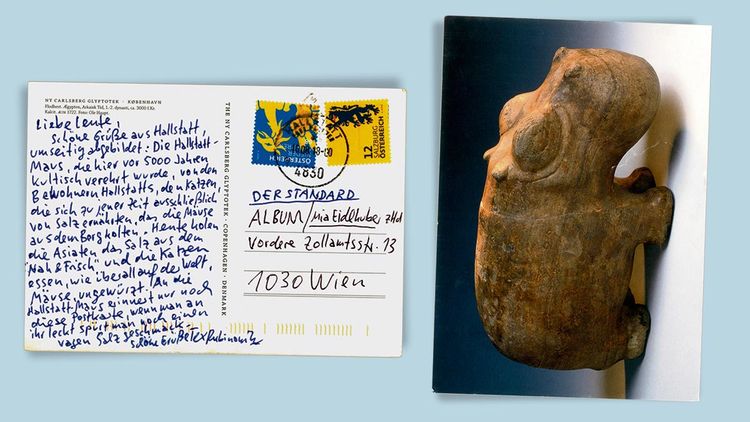 NY CARLSBERG GLYPTOTEK · KØBENHAVN
Flodhest. Ægypten, Arkaisk Tid, 1.-2. dynasti, ca. 3000 f.Kr.
Kalcit. Æin 1722. Foto: Ole Haupt.
Liebe Leute,
schöne Grüße aus Hallstatt,
umseitig abgebildet: Die Hallstatt-
Maus, die hier vor 5000 Jahren
kultisch verehrt wurde, von den
Bewohnern Hallstatts, den Katzen,
die sich zu jener Zeit ausschließlich
von Salz ernährten, das die Mäuse
aus dem Berg holten. Heute holen
die Asiaten das Salz aus dem
"Nah & Frisch" und die Katzen
essen, wie überall auf der Welt,
Mäuse, ungewürzt. An die
Hallstatt-Maus erinnert nur noch
diese Postkarte, wenn man an
ihr leckt spürt man noch einen
vagen Salzgeschmack.
schöne Grüße Tex Rubinowitz
THE NY CARLSBERG GLYPTOTEK · COPENHAGEN · DENMARK
ÖSTERREICH
12 SALZBURG ÖSTERREICH
4830
DER STANDARD
ALBUM / Mia Eidlhuber zHd
Vordere Zollamtsstr. 13
1030 Wien